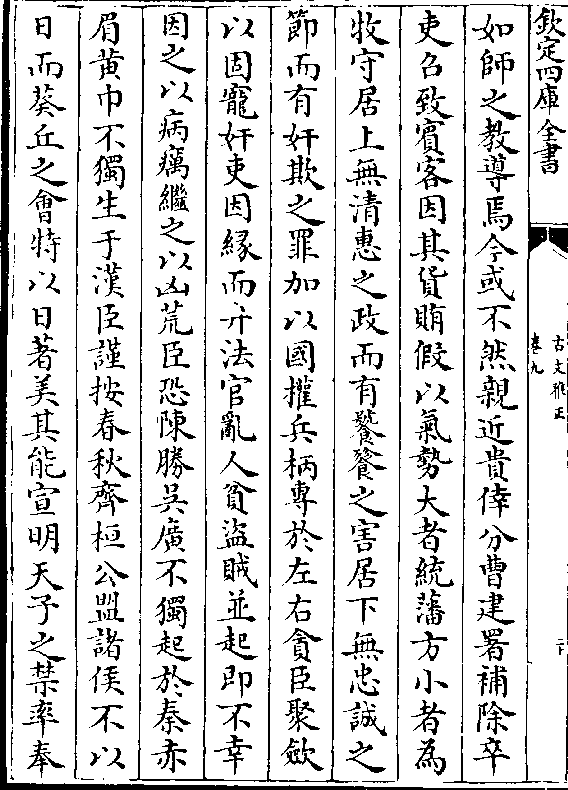 欽定四庫全書
古文雅正
卷九
如師之教導焉今或不然親近貴倖分曹建署補除卒
吏召致賓客因其貨賄假以氣勢大者統藩方小者為
牧守居上無清惠之政而有饕餮之害居下無忠誠之
節而有奸欺之罪加以國權兵柄專於左右貪臣聚斂
以固寵奸吏因緣而弄法官亂人貧盜賊並起即不幸
因之以病癘繼之以凶荒臣恐陳勝吳廣不獨起於秦赤
眉黄巾不獨生于漢臣謹按春秋齊桓公盟諸侯不以
日而葵丘之會特以日著美其能宣明天子之禁率奉